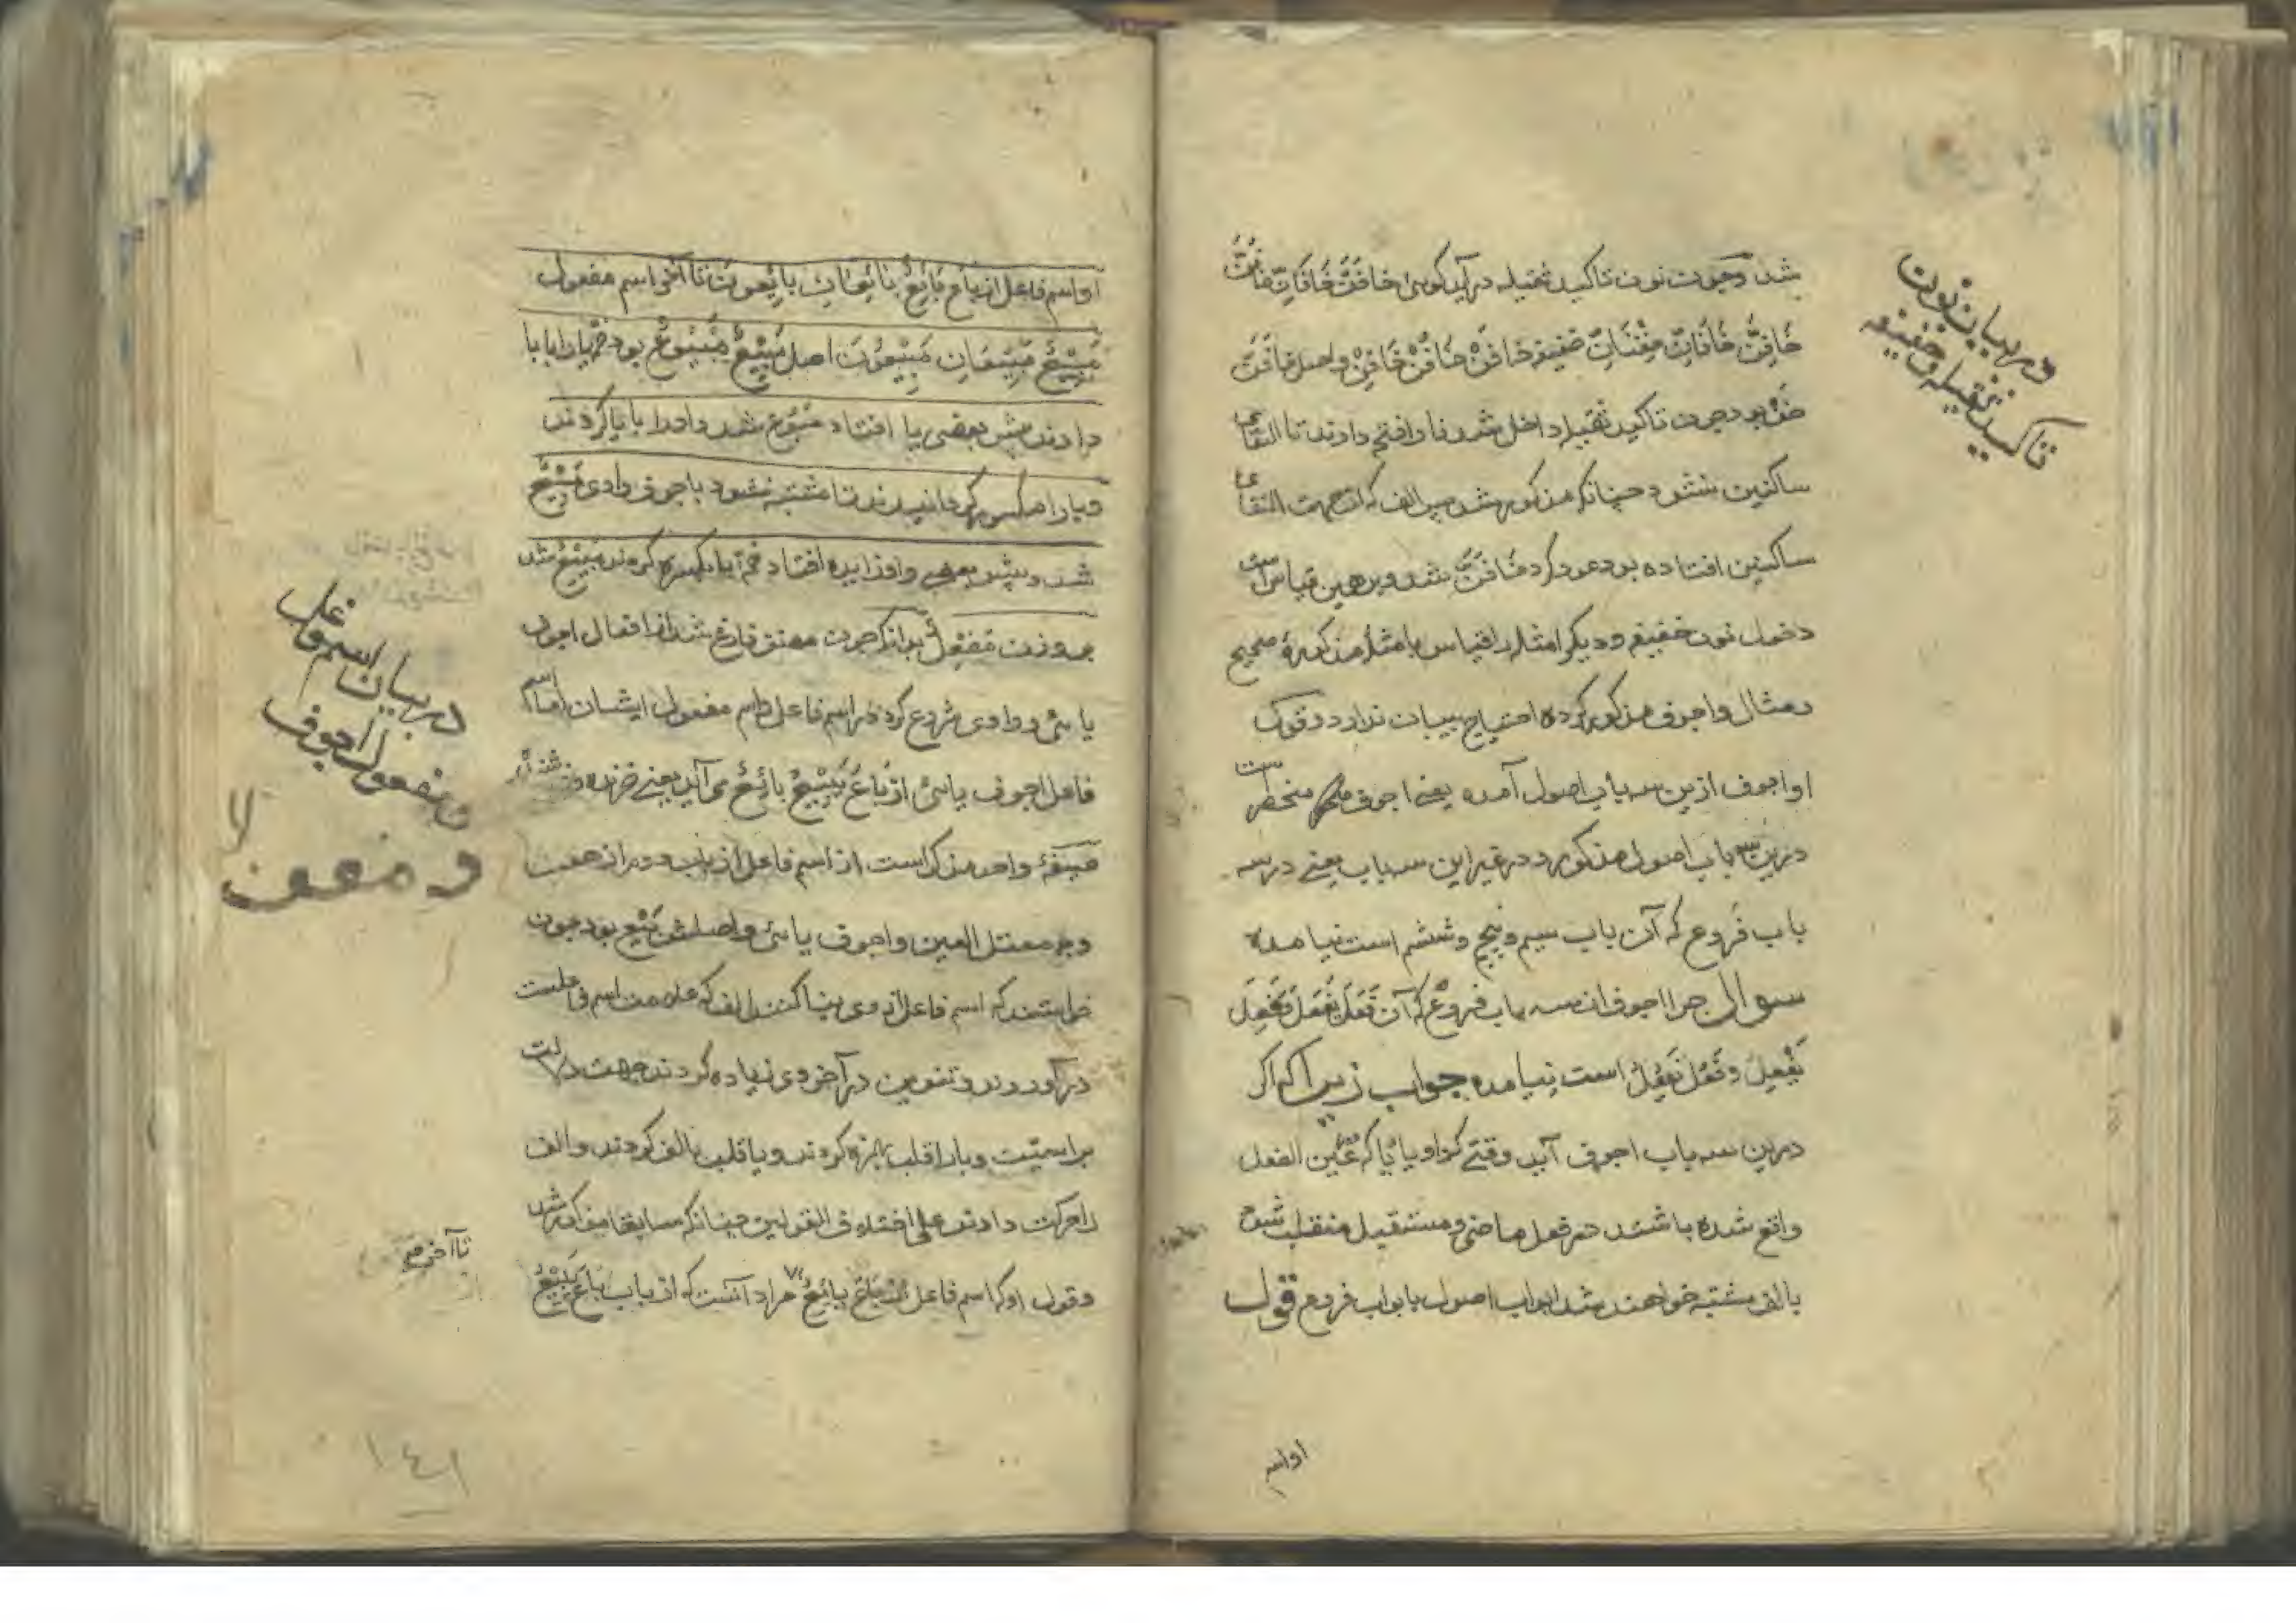 شد و چون نون تاکید ثقیله در آید کوی خافَنَّ خَافَانِّ خَافُنَّ
خَافِنَّ خَافَانِّ خِفْنَانِّ خفیفه خافَنْ خَافُنْ خَافِنْ واصل خَافَنَّ
خَفْ بود چون تاکید ثقیله داخل شد فا را فتح دادند تا التقای
ساکنین نشود چنانکه مذکور شد پس الف که از جهت التقای
ساکنین افتاده بود عود کرد خَافَنَّ شد و برهمین قیاس است
دخول نون خفیفه و دیکر امثله را قیاس بامثلهٔ مذکورهٔ صحیح
و مثال واجوف مذکور کرده احتیاج ببیان ندارد و قول
او اجوف ازین سه باب اصول آمده یعنی اجوف منحصر است
درین سه باب اصول مذکور و در غیر این سه باب یعنی در سه
باب فروع که آن باب سیم و پنجم و ششم است نیامده
سوال چرا اجوف از سه باب فروع که آن فَعَلَ یَفْعَلُ فَعِلَ
یَفْعِلُ وفَعُلَ یَفْعُلُ است نیامده جواب زیرا که اکر
درین سه باب اجوف آید وقتی که واو یا یا که عین الفعل
واقع شده باشند در فعل ماضی و مستقبل منقلب شود
بالف مشتبه خواهند شد ابواب اصول بابواب فروع قول
در بیان نون
تاکید ثقیله و خفیفه
او اسم
او اسم فاعل از باع بَائِعٌ بَائِعَانِ بَائِعُونَ تا آخر اسم مفعول
مَبِیْعٌ مَبِیْعَانِ مَبِیْعُوْنَ اصل مَبِیْعٌ مَبْیُوْعٌ بود ضمهٔ یا را بابا
دادند پس بعضی یا افتاد مَبُوْعٌ شد واو را بایا کردند
و با را مکسور کردانیدند تا مشتبه نشود باجوف واوی مَبِیْعٌ
شد و پیش بعضی واو زایده افتاد ضمهٔ با را بکسره کردند مَبِیْعٌ شد
بر وزن مَفِعْلٌ بدانکه چون مصنف فارغ شد از افعال اجوف
یائی و واوی شروع کرد در اسم فاعل واسم مفعول ایشان اما اسم
فاعل اجوف یائی از بَاعَ یَبِیْعُ بائِعٌ می آید یعنی خرنده و فروشنده
صیغهٔ واحد مذکر است از اسم فاعل از باب دوم از هفت
وجه معتل العین و اجوف یائی واصلش بَیَعَ بود چون
خواستند که اسم فاعل از وی بنا کنند الف که علامت اسم فاعلست
در آوردند و تنوین در آخر وی زیاده کردند جهت دلالت
بر اسمیت و یا را قلب بهمزه کردند و یا قلب بالف کردند والف
را حرکت دادند علی اختلاف القولین چنانکه سابقا مذکور شد
وقول او که اسم فاعل از باع بائِعٌ مراد آنست که از باب بَاعَ یَبِیْعُ
در بیان اسم فاعل
و مفعول اجوف
تا آخر
١٤١